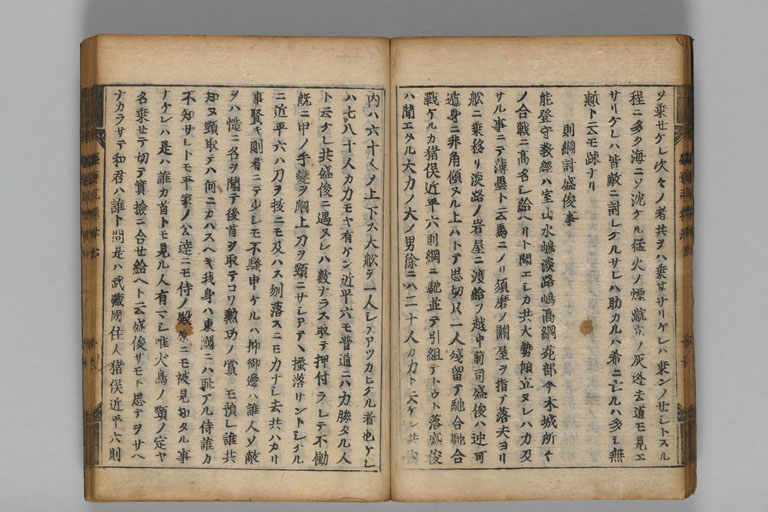 ヲ乗せケレ次々ノ者共ヲハ乗せサリケレハ乗ンノせレトスル
程ニ多ク海ニソ沈ケル猛火ノ煙蹴立ノ灰迷去道モ見エ
サリケレハ皆敵ニ討レケルサレハ助カルハ希ニ亡ルハ多シ無
慙ト云モ疎ナリ
則綱討盛俊事
能登守教經ハ室山水嶋淡路嶋高綱苑部今木城所々
ノ合戰ニ高名シ給ヘリト聞エシカ共大勢傾立ヌレハ力及
サル事ニテ薄墨ト云馬ニノリ須磨ノ關屋ヲ指ア落夫ヨリ
舩ニ乗移リ淡路ノ岩屋ニ渡給フ越中前司盛俊ハ迚可
遁身ニ非角傾ヌル上ハトテ思切只一人殘留テ馳合馳合
戰ケルカ猪俣近平六則綱ニ馳並テ引組テトウト落盛俊
ハ聞エタル大力ノ大ノ男徐ニハ二十人カ力ト云ケレ共
内ハ六十人ノ上下ス大舩ヲ一人シテアツカヒケル者也ケレ
ハ七八十人カ力モヤ有ケン近平六モ普通ニハ力勝タル人
ト云ケレ共盛俊ニ遇ヌレハ數ナラス取テ押付ラレテ不働
既ニ申ノ手變ヲ胸上刀ヲ頸ニサシアテヽ搔落サントシケル
ニ近平六ハ刀ヲ抜ニモ及ハス刎落スニモ力ナシ去共ハカリ
事賢キ剛者ニテ少シモ不騒申ケルハ抑御邊ハ誰人ソ敵
ヲハ慥ニ名ヲ聞テ後首ヲ取テコソ勲功ノ賞ニモ預レ誰共
知ヌ頸取テハ何ニカハスヘキ我身ハ東國ニハ耻アル侍誰カ
不知サレトモ平家ノ公達ニモ侍ノ殿原ニモ被見知タル事
ナケレハ是ハ誰カ首トモ見ル人有マシ唯犬鳥ノ頸ノ定ヤ
名乗せテ切テ實撿ニ合せ給ヘト云盛俊サモト思テヲサヘ
ナカラサテ和君ハ誰ト問是ハ武藏國住人猪俣近平六則